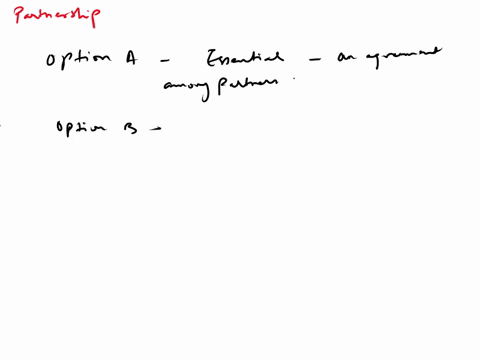 Partnership
Option A - Essential - an agreement
among Partners.
Option B -